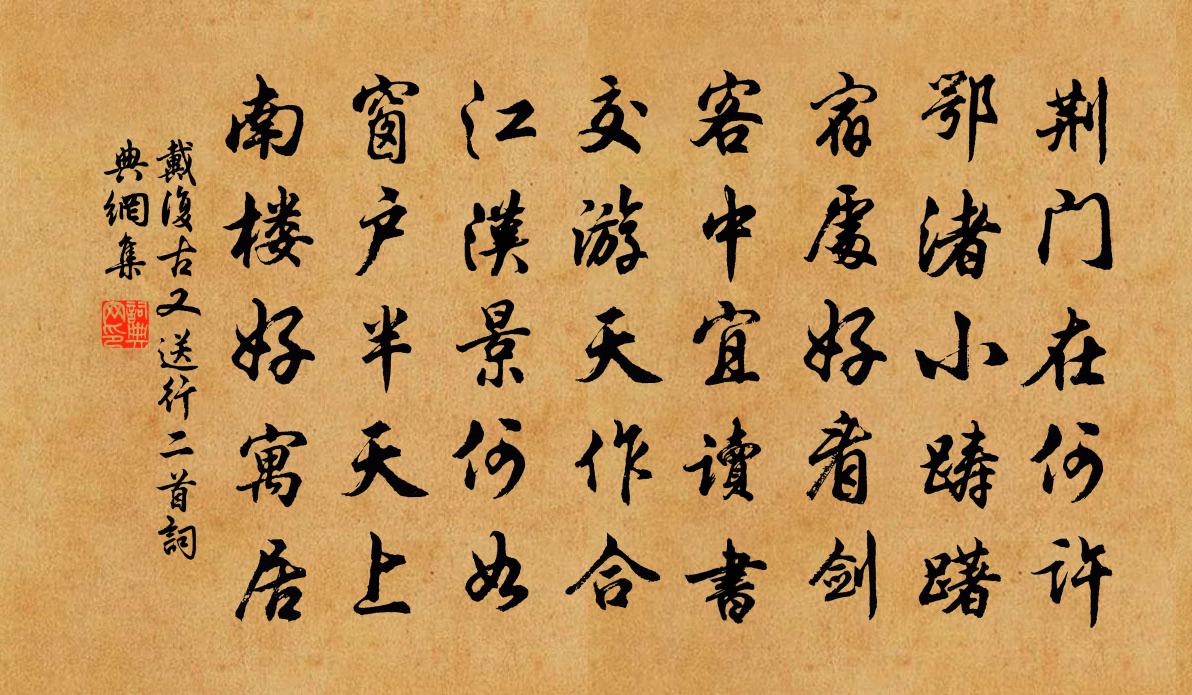 荆门在何许
鄂渚小踌躇
宿處好看剑
客中宜讀書
交游天作合
江漢景何如
窗户半天上
南楼好寓居
戴復古又送行二首詞
典網集
詞典网印